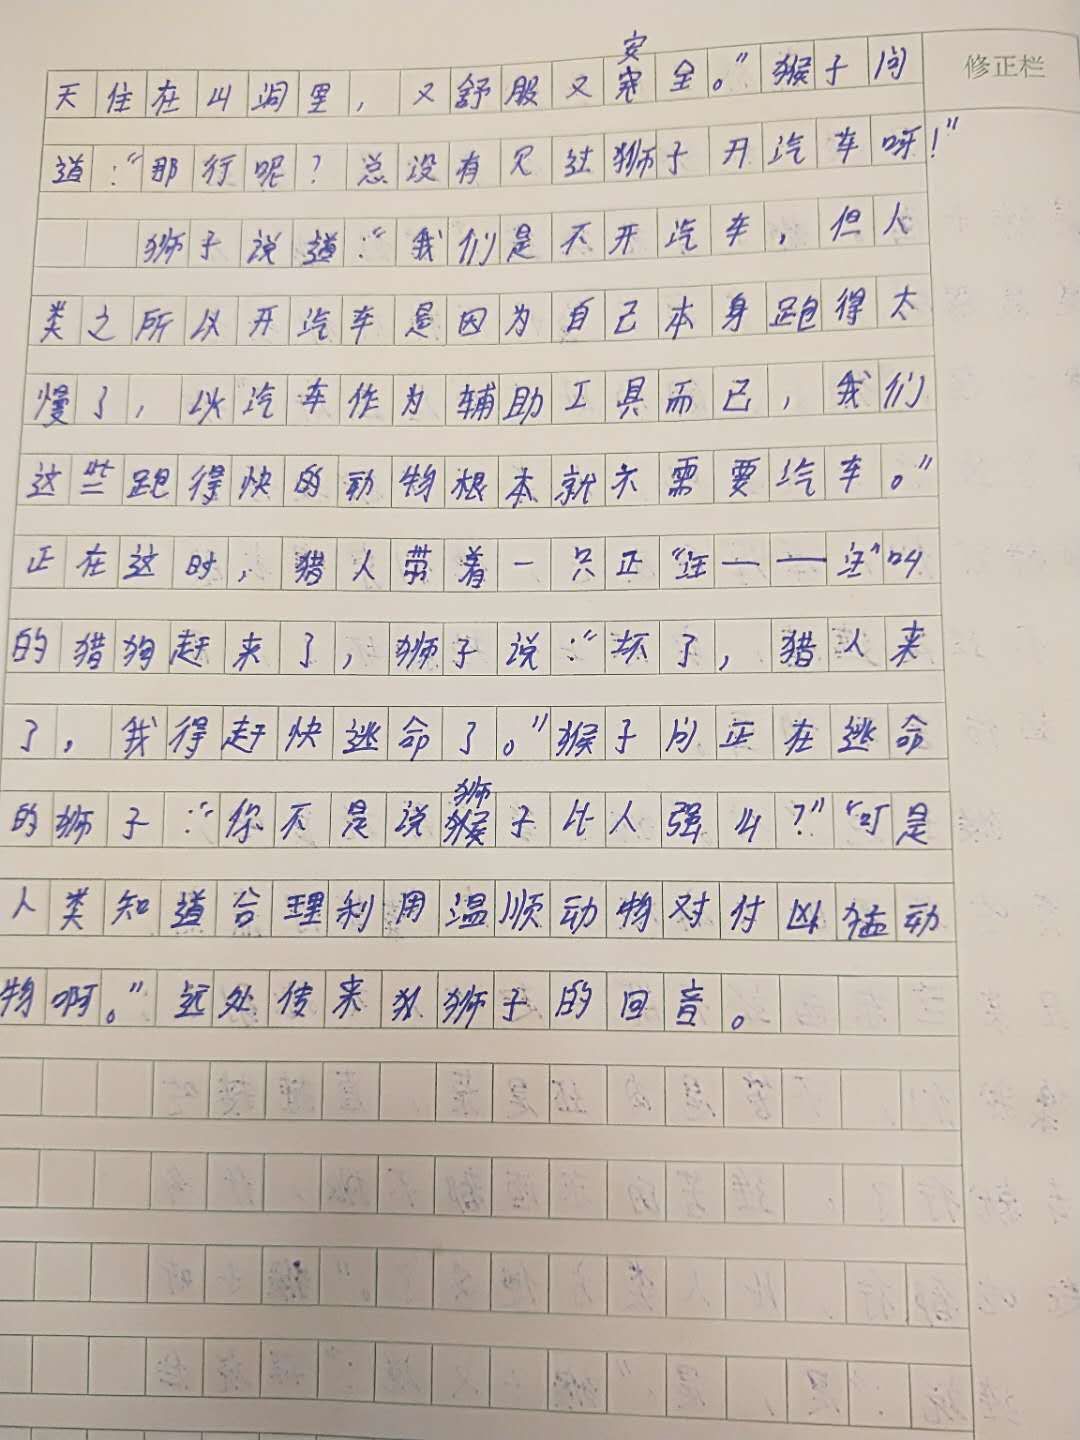 修正栏
天住在山洞里，又舒服又安全。”猴子问
道：“那行呢？总没有见过狮子开汽车呀！”
狮子说道：“我们是不开汽车，但人
类之所以开汽车是因为自己本身跑得太
慢了，以汽车作为辅助工具而已，我们
这些跑得快的动物根本就不需要汽车。”
正在这时，猎人带着一只正“汪——汪”叫
的猎狗赶来了，狮子说：“坏了，猎人来
了，我得赶快逃命了。”猴子问正在逃命
的狮子：“你不是说狮子比人强么？”“可是
人类知道合理利用温顺动物对付凶猛动
物啊。”远处传来狮子的回音。